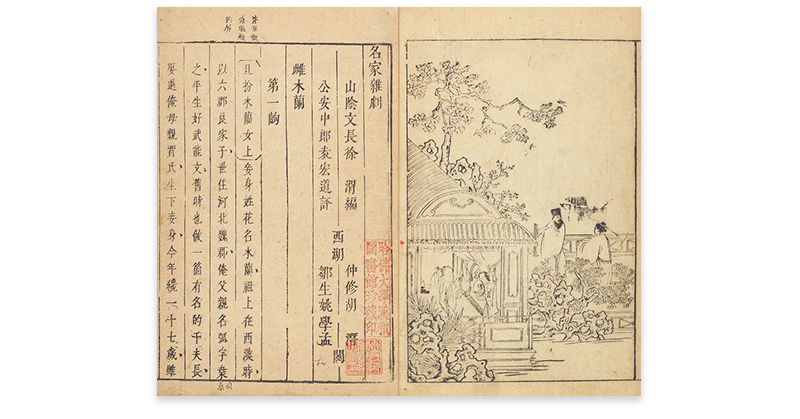 名家雜劇
山陰文長徐 渭編
公安中郎袁宏道評
西湖 仲修胡
鄒生姚學孟 閱
雌木蘭
第一齣
且扮木蘭女上妾身姓花名木蘭祖上在西漢時
以六郡良家子世住河北魏郡俺父親名弧字桑
之平生好武能文舊時也做一箇有名的千夫長
娶過俺母親賈氏生下妾身今年纔一十七歲雖
哈佛大學漢和
圖書館珍藏印